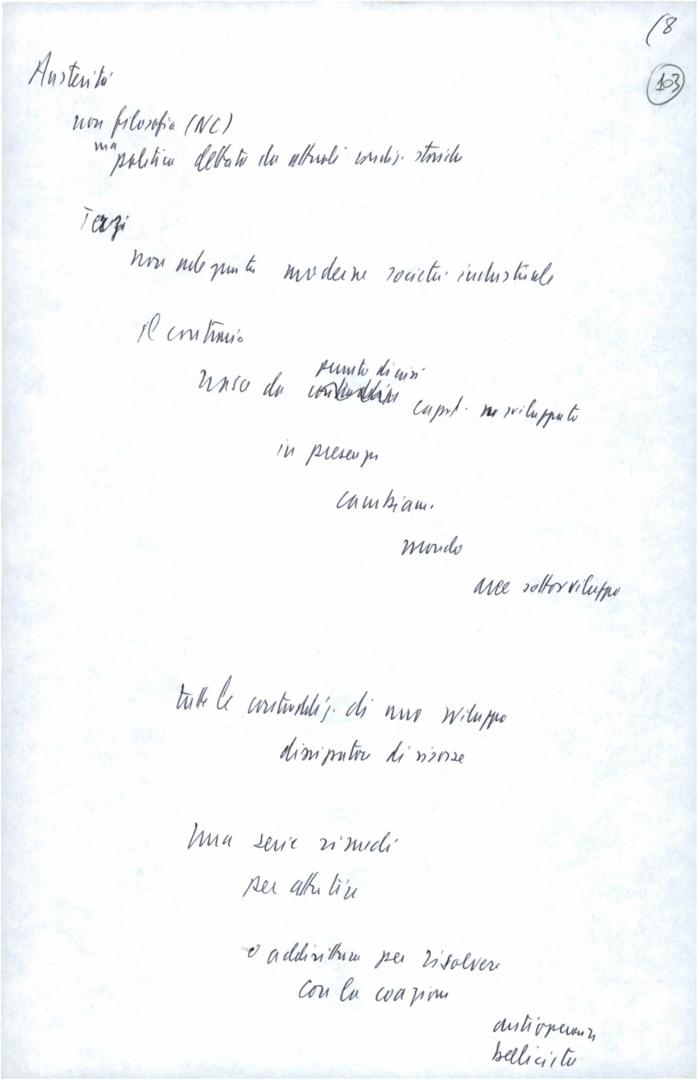 (8
103
Austerità
non filosofia (NC)
ma
politica dettata da attuali condiz. storiche
Terzi
non adeguata moderne società industriale
il contrario
nasce da punto di crisi
capit. sviluppato
in presenza
cambiam.
mondo
aree sottosviluppo
tutte le contraddiz. di uno sviluppo
dissipatore di risorse
Una serie rimedi
per attutire
o addirittura per risolvere
con la coazione
antioperaia
bellicista